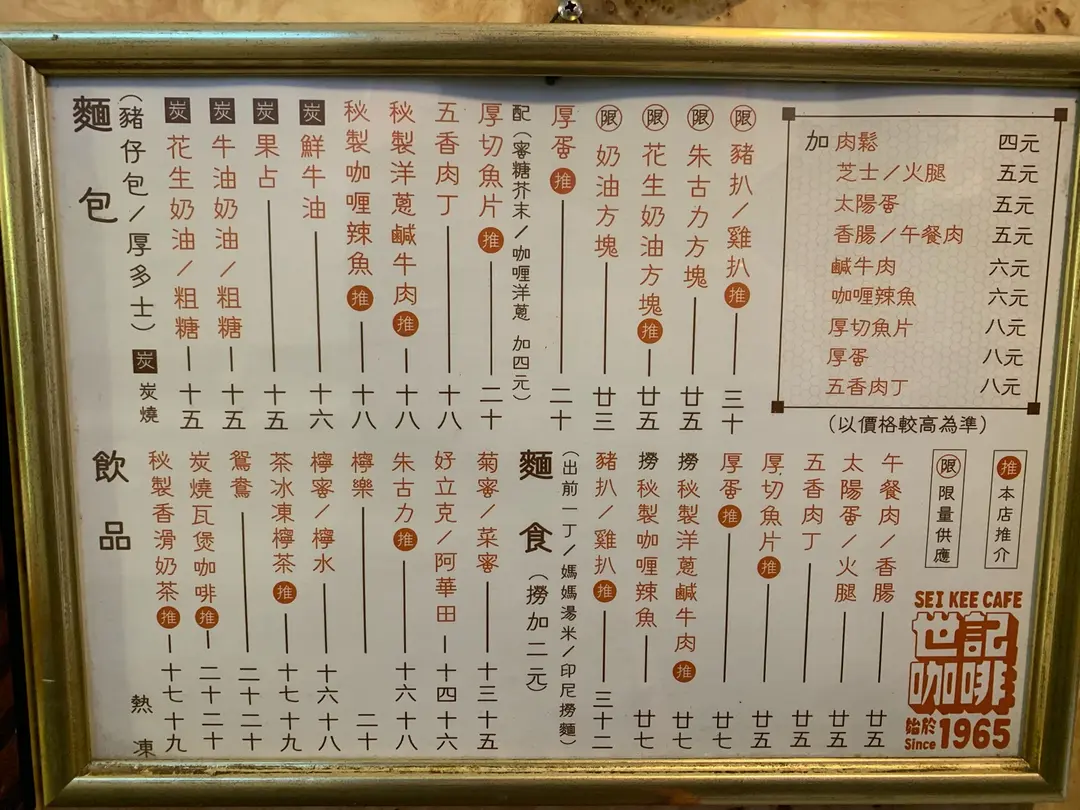 麵包
(豬仔包/厚多士) 炭 炭燒
炭 花生奶油/粗糖 十五
炭 牛油奶油/粗糖 十五
炭 果占 十五
炭 鮮牛油 十六
秘製咖喱辣魚 推 十八
秘製洋蔥鹹牛肉 推 十八
五香肉丁 十八
厚切魚片 推 二十
配(蜜糖芥末/咖喱洋蔥 加四元)
厚蛋 推 二十
限 奶油方塊 廿三
限 花生奶油方塊 推 廿五
限 朱古力方塊 廿五
限 豬扒/雞扒 推 三十
加 肉鬆 四元
芝士/火腿 五元
太陽蛋 五元
香腸/午餐肉 五元
鹹牛肉 六元
咖喱辣魚 六元
厚切魚片 八元
厚蛋 八元
五香肉丁 八元
(以價格較高為準)
飲品
熱 凍
秘製香滑奶茶 推 十七 十九
炭燒瓦煲咖啡 推 二十 二十
鴛鴦 二十 二十
茶冰凍檸茶 推 十七 十九
檸蜜/檸水 十六 十八
檸樂 二十
朱古力 推 十六 十八
好立克/阿華田 十四 十六
菊蜜/菜蜜 十三 十五
麵食(撈加二元)
(出前一丁/媽媽湯米/印尼撈麵)
豬扒/雞扒 推 三十二
撈秘製咖喱辣魚 廿七
撈秘製洋蔥鹹牛肉 推 廿七
厚蛋 推 廿七
厚切魚片 推 廿五
五香肉丁 廿五
太陽蛋/火腿 廿五
午餐肉/香腸 廿五
限 限量供應
推 本店推介
SEI KEE CAFE
世記
咖啡
始於
Since 1965